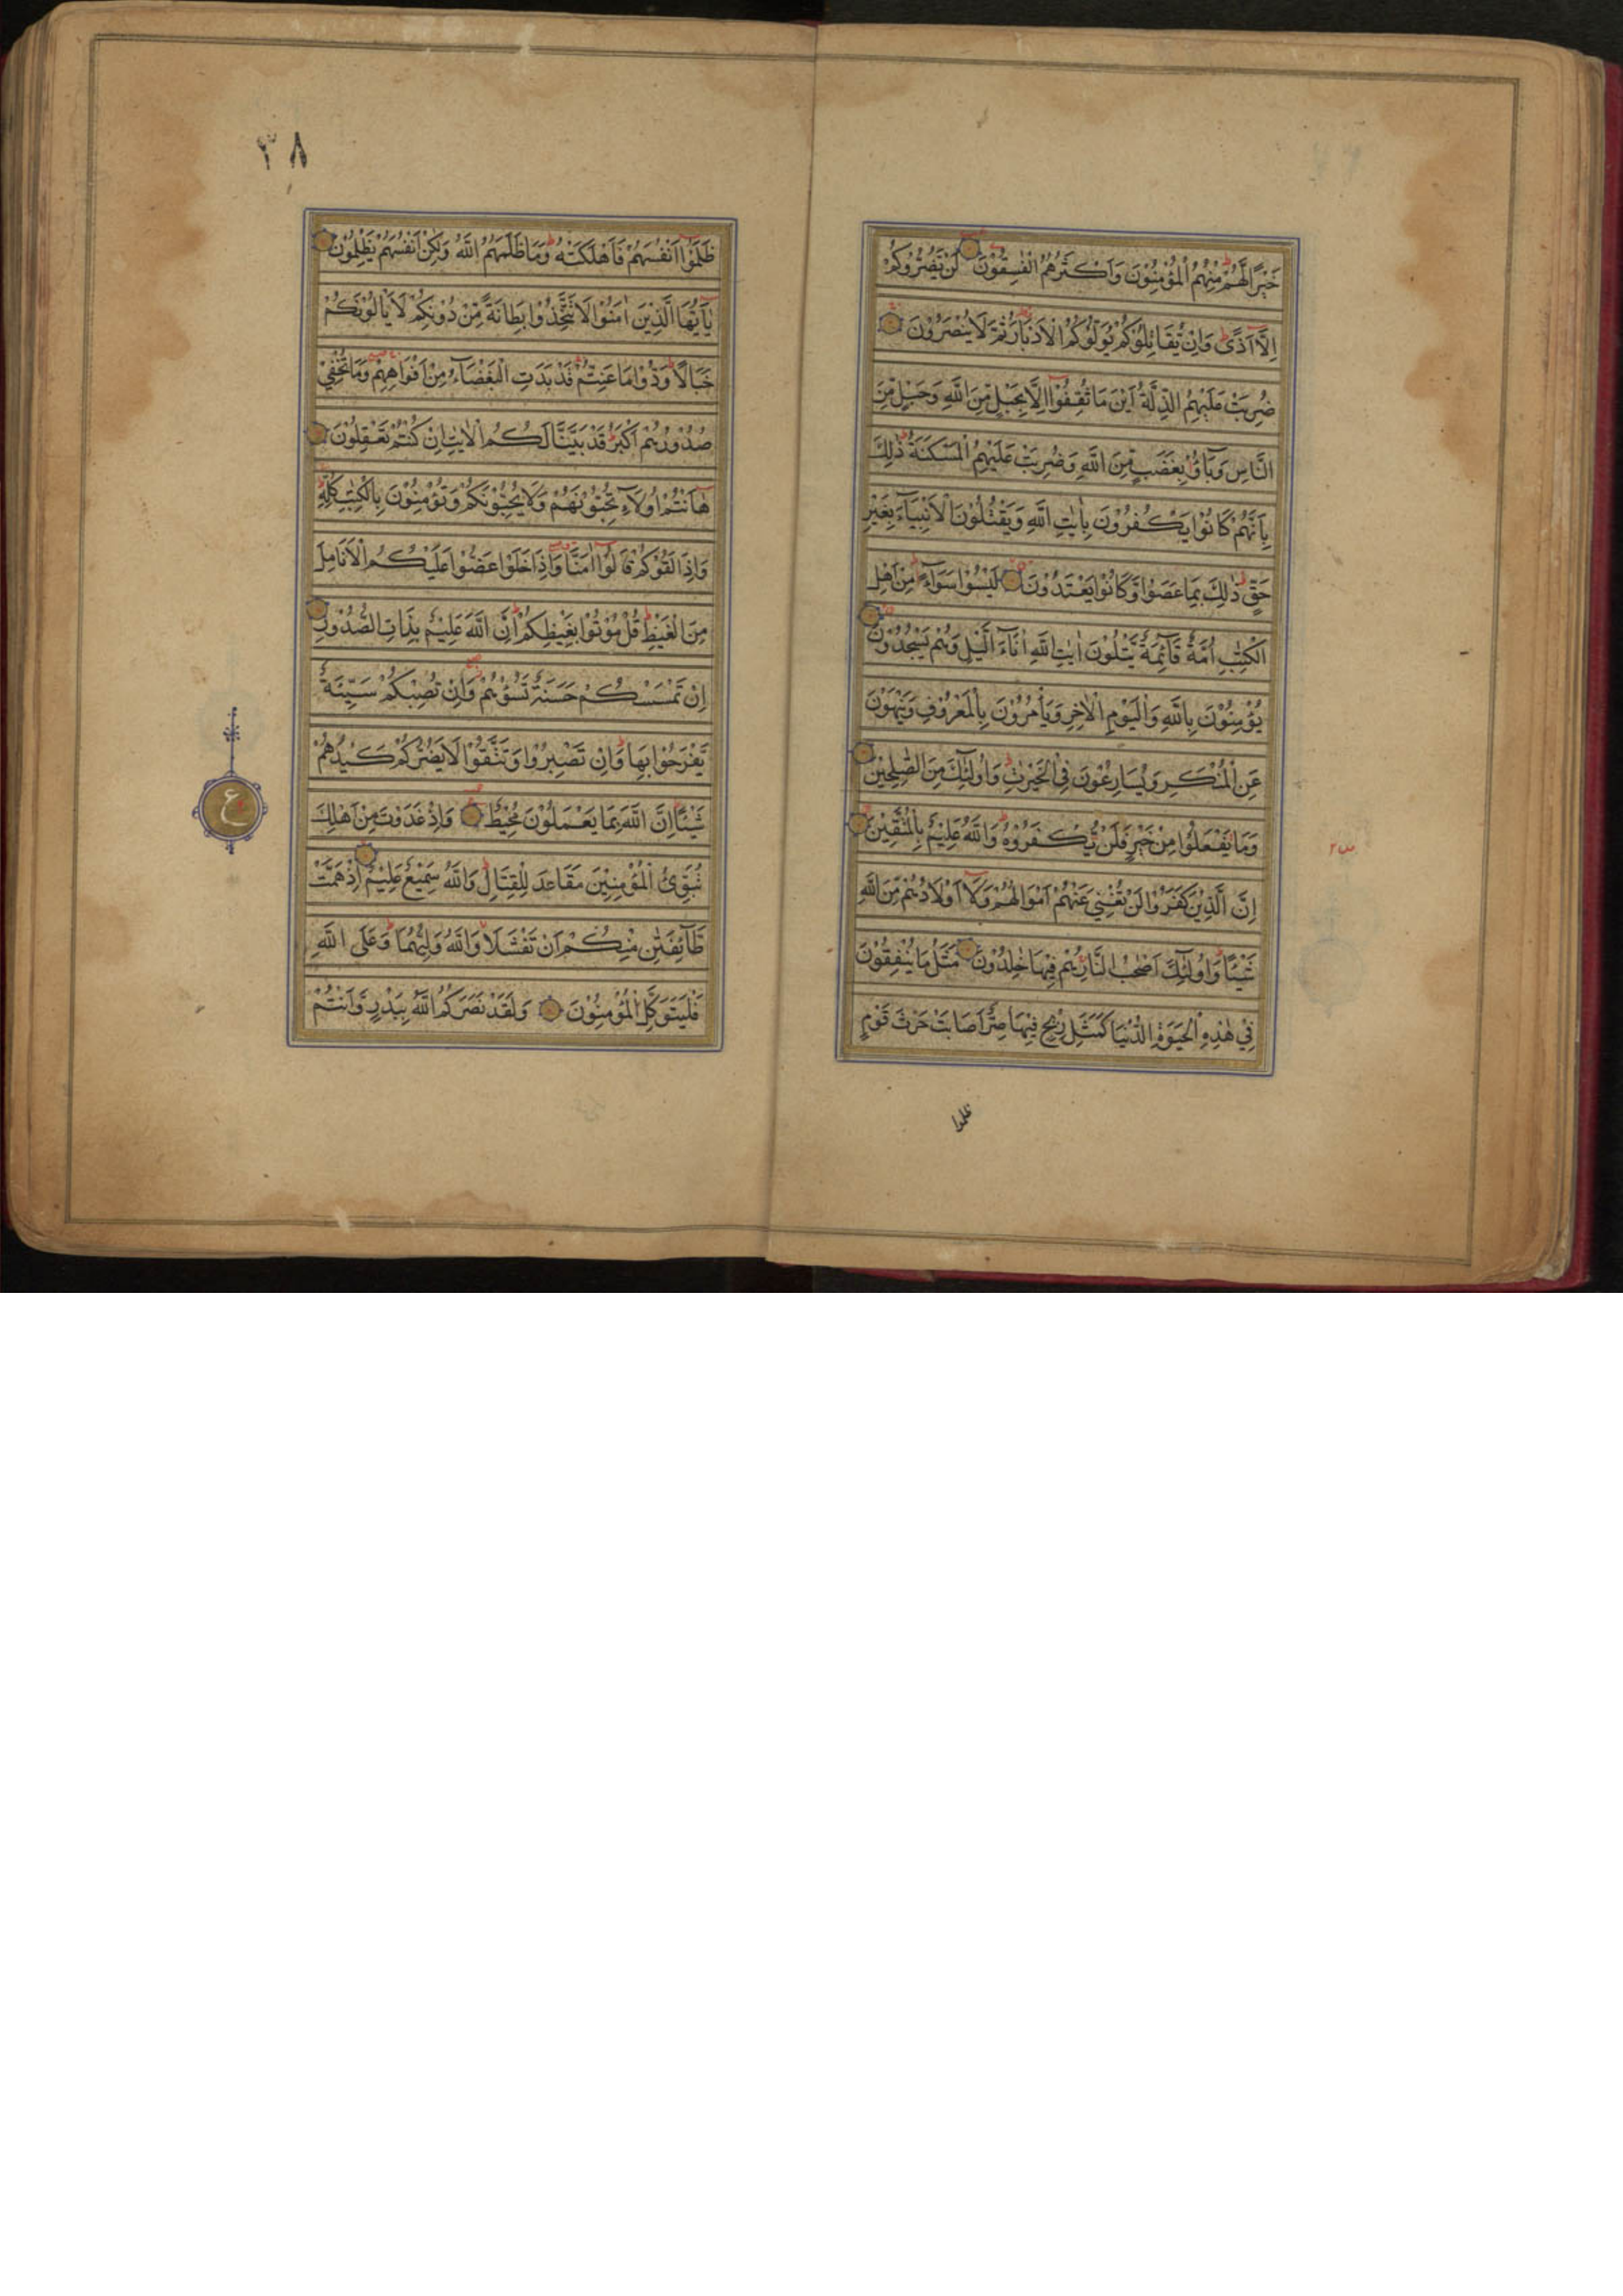 خَيْرًا لَّهُمْ مِنْهُمُ الْمُؤْمِنُوْنَ وَاَكْثَرُهُمُ الْفٰسِقُوْنَ لَنْ يَضُرُّوْكُمْ
اِلَّآ اَذًى وَاِنْ يُّقَاتِلُوْكُمْ يُوَلُّوْكُمُ الْاَدْبَارَ ثُمَّ لَا يُنْصَرُوْنَ
ضُرِبَتْ عَلَيْهِمُ الذِّلَّةُ اَيْنَ مَا ثُقِفُوْٓا اِلَّا بِحَبْلٍ مِّنَ اللّٰهِ وَحَبْلٍ مِّنَ
النَّاسِ وَبَآؤُ بِغَضَبٍ مِّنَ اللّٰهِ وَضُرِبَتْ عَلَيْهِمُ الْمَسْكَنَةُ ذٰلِكَ
بِاَنَّهُمْ كَانُوْا يَكْفُرُوْنَ بِاٰيٰتِ اللّٰهِ وَيَقْتُلُوْنَ الْاَنْبِيَآءَ بِغَيْرِ
حَقٍّ ذٰلِكَ بِمَا عَصَوْا وَّكَانُوْا يَعْتَدُوْنَ لَيْسُوْا سَوَآءً مِنْ اَهْلِ
الْكِتٰبِ اُمَّةٌ قَآئِمَةٌ يَّتْلُوْنَ اٰيٰتِ اللّٰهِ اٰنَآءَ الَّيْلِ وَهُمْ يَسْجُدُوْنَ
يُؤْمِنُوْنَ بِاللّٰهِ وَالْيَوْمِ الْاٰخِرِ وَيَأْمُرُوْنَ بِالْمَعْرُوْفِ وَيَنْهَوْنَ
عَنِ الْمُنْكَرِ وَيُسَارِعُوْنَ فِي الْخَيْرٰتِ وَاُولٰٓئِكَ مِنَ الصّٰلِحِيْنَ
وَمَا يَفْعَلُوْا مِنْ خَيْرٍ فَلَنْ يُّكْفَرُوْهُ وَاللّٰهُ عَلِيْمٌ بِالْمُتَّقِيْنَ
اِنَّ الَّذِيْنَ كَفَرُوْا لَنْ تُغْنِيَ عَنْهُمْ اَمْوَالُهُمْ وَلَآ اَوْلَادُهُمْ مِّنَ اللّٰهِ
شَيْئًا وَاُولٰٓئِكَ اَصْحٰبُ النَّارِ هُمْ فِيْهَا خٰلِدُوْنَ مَثَلُ مَا يُنْفِقُوْنَ
فِيْ هٰذِهِ الْحَيٰوةِ الدُّنْيَا كَمَثَلِ رِيْحٍ فِيْهَا صِرٌّ اَصَابَتْ حَرْثَ قَوْمٍ
ظلموا
٣٨
ظَلَمُوْٓا اَنْفُسَهُمْ فَاَهْلَكَتْهُ وَمَا ظَلَمَهُمُ اللّٰهُ وَلٰكِنْ اَنْفُسَهُمْ يَظْلِمُوْنَ
يٰٓاَيُّهَا الَّذِيْنَ اٰمَنُوْا لَا تَتَّخِذُوْا بِطَانَةً مِّنْ دُوْنِكُمْ لَا يَاْلُوْنَكُمْ
خَبَالًا وَدُّوْا مَا عَنِتُّمْ قَدْ بَدَتِ الْبَغْضَآءُ مِنْ اَفْوَاهِهِمْ وَمَا تُخْفِيْ
صُدُوْرُهُمْ اَكْبَرُ قَدْ بَيَّنَّا لَكُمُ الْاٰيٰتِ اِنْ كُنْتُمْ تَعْقِلُوْنَ
هٰٓاَنْتُمْ اُولَآءِ تُحِبُّوْنَهُمْ وَلَا يُحِبُّوْنَكُمْ وَتُؤْمِنُوْنَ بِالْكِتٰبِ كُلِّهٖ
وَاِذَا لَقُوْكُمْ قَالُوْٓا اٰمَنَّا وَاِذَا خَلَوْا عَضُّوْا عَلَيْكُمُ الْاَنَامِلَ
مِنَ الْغَيْظِ قُلْ مُوْتُوْا بِغَيْظِكُمْ اِنَّ اللّٰهَ عَلِيْمٌ بِذَاتِ الصُّدُوْرِ
اِنْ تَمْسَسْكُمْ حَسَنَةٌ تَسُؤْهُمْ وَاِنْ تُصِبْكُمْ سَيِّئَةٌ
يَّفْرَحُوْا بِهَا وَاِنْ تَصْبِرُوْا وَتَتَّقُوْا لَا يَضُرُّكُمْ كَيْدُهُمْ
شَيْئًا اِنَّ اللّٰهَ بِمَا يَعْمَلُوْنَ مُحِيْطٌ وَاِذْ غَدَوْتَ مِنْ اَهْلِكَ
تُبَوِّئُ الْمُؤْمِنِيْنَ مَقَاعِدَ لِلْقِتَالِ وَاللّٰهُ سَمِيْعٌ عَلِيْمٌ اِذْ هَمَّتْ
طَّآئِفَتٰنِ مِنْكُمْ اَنْ تَفْشَلَا وَاللّٰهُ وَلِيُّهُمَا وَعَلَى اللّٰهِ
فَلْيَتَوَكَّلِ الْمُؤْمِنُوْنَ وَلَقَدْ نَصَرَكُمُ اللّٰهُ بِبَدْرٍ وَّاَنْتُمْ
ع